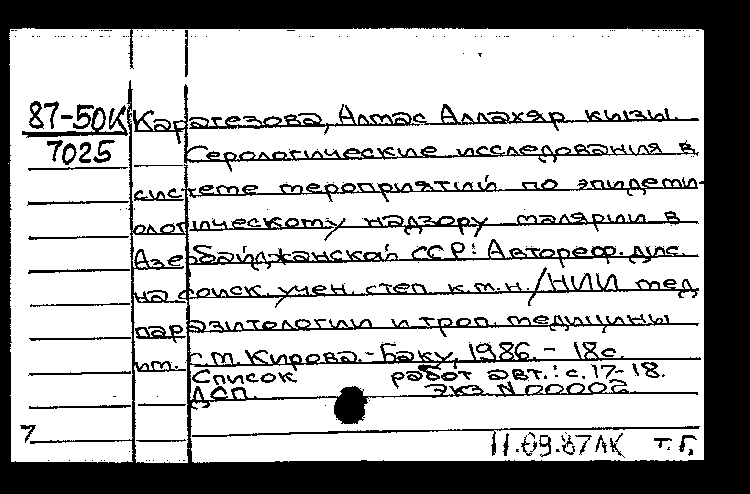 87-50К Карагезова, Алмас Аллахяр кызы.
7025 Серологические исследования в
системе мероприятий по эпидеми-
ологическому надзору малярии в
Азербайджанской ССР: Автореф. дис.
на соиск. учен. степ. к.м.н. /НИИ мед.
паразитологии и троп. медицины
им. С.М. Кирова.-Баку, 1986. - 18с.
Список работ авт.: с.17-18.
ДСП. Экз. N 00002.
7
11.09.87ЛК Т.Г.